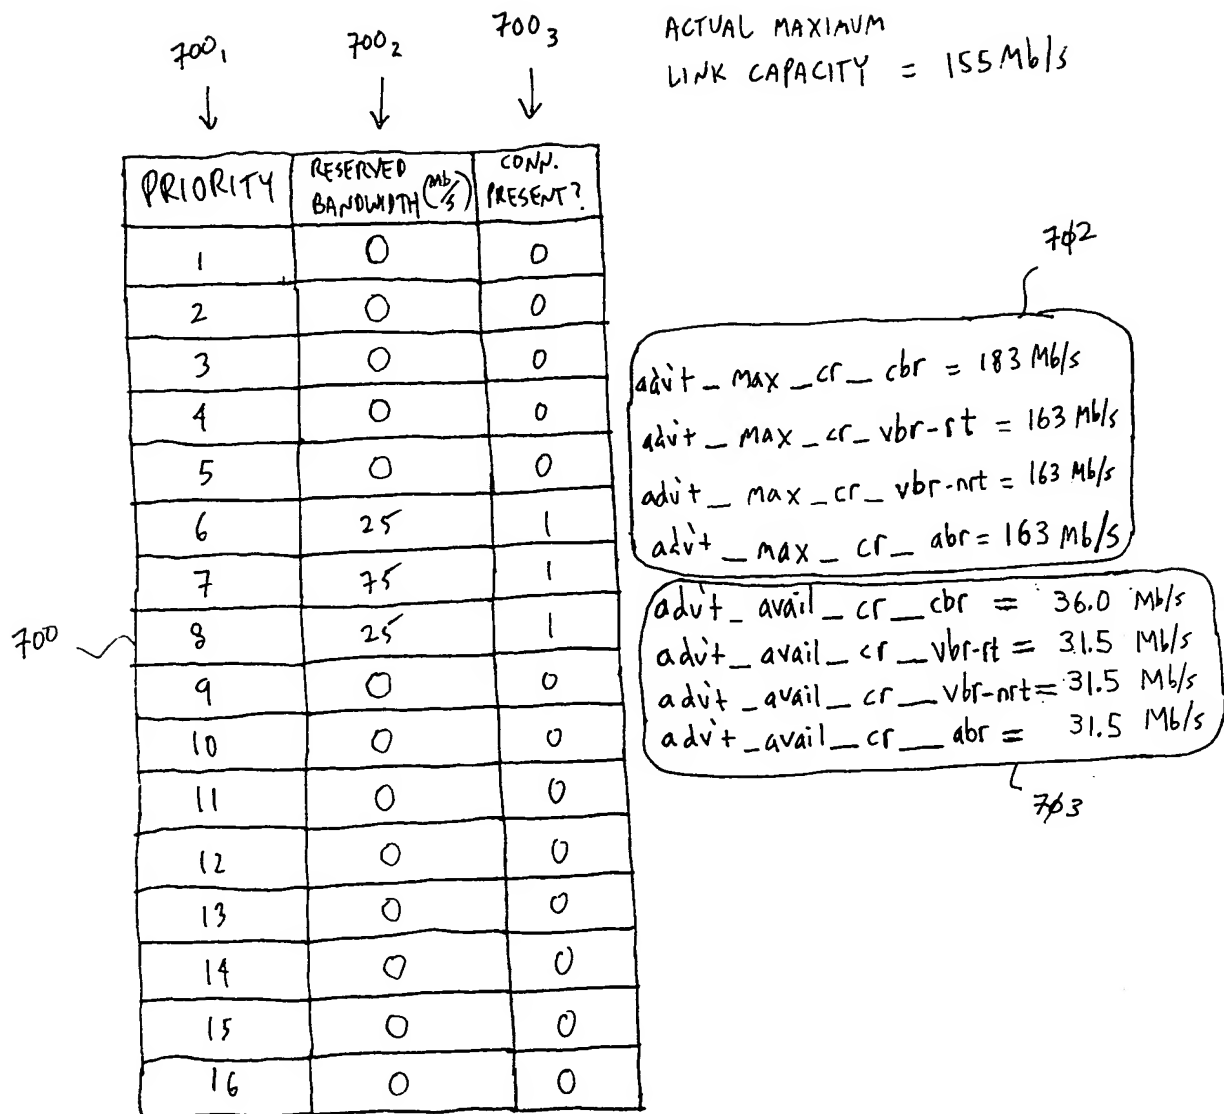 700₁ 700₂ 700₃
ACTUAL MAXIMUM
LINK CAPACITY = 155 Mb/s
PRIORITY RESERVED BANDWIDTH (Mb/s) CONN. PRESENT?
1 0 0
2 0 0
3 0 0
4 0 0
5 0 0
6 25 1
7 75 1
8 25 1
9 0 0
10 0 0
11 0 0
12 0 0
13 0 0
14 0 0
15 0 0
16 0 0
700
702
advt_max_cr_cbr = 183 Mb/s
advt_max_cr_vbr-rt = 163 Mb/s
advt_max_cr_vbr-nrt = 163 Mb/s
advt_max_cr_abr = 163 Mb/s
advt_avail_cr_cbr = 36.0 Mb/s
advt_avail_cr_vbr-rt = 31.5 Mb/s
advt_avail_cr_vbr-nrt = 31.5 Mb/s
advt_avail_cr_abr = 31.5 Mb/s
703